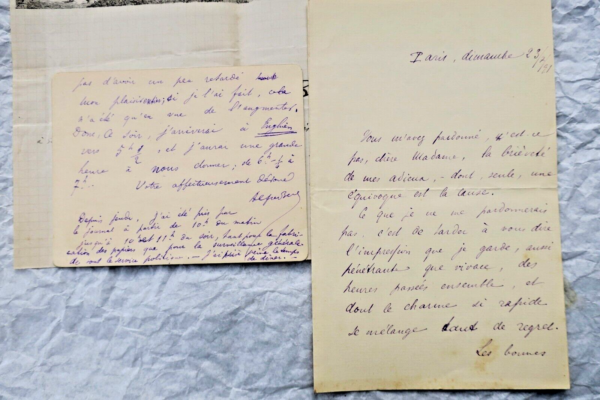 pas d'avoir un peu retardé
mon plaisir; si je l'ai fait, cela
n'a été qu'en vue de l'augmenter.
Donc, ce soir, j'arriverai à Enghien
vers 5h ½, et j'aurai une grande
heure à nous donner, de 5h ½ à
7h. Votre affectueusement dévoué
Depuis jeudi, j'ai été pris par
le journal à partir de 10h du matin
jusqu'à 10h et 11h du soir, tant pour la
que pour la surveillance générale
le temps
de dîner. —
Paris, dimanche 23
Vous m'avez pardonné, n'est-ce
pas, chère Madame, la brièveté
de mes adieux, – dont, seule, une
équivoque est la cause.
Ce que je ne me pardonnerais
pas, c'est de tarder à vous dire
l'impression que je garde, aussi
pénétrante que vivace, des
heures passées ensemble, et
dont le charme si rapide
se mélange tant de regret.
Les bonnes